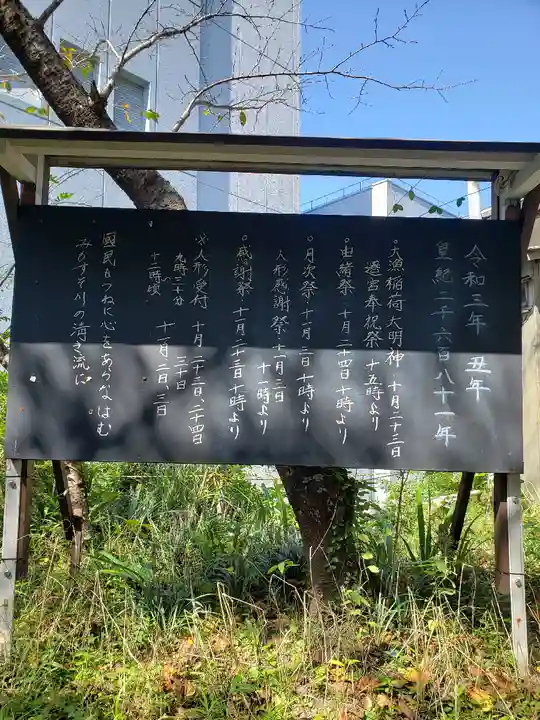 令和三年 丑年
皇紀二千六百八十一年
○大漁稲荷大明神 十月二十三日
遷宮奉祝祭 十五時より
○由緒祭 十月二十四日十時より
○月次祭 十一月三日十時より
人形感謝祭 十一月三日
十一時より
○感謝祭 十一月二十三日十時より
※人形受付 十月二十三、二十四日
三十日
九時三十分
十二時頃 十一月二日、三日
國民もつねに心をあらはなむ
みもすそ川の清き流に